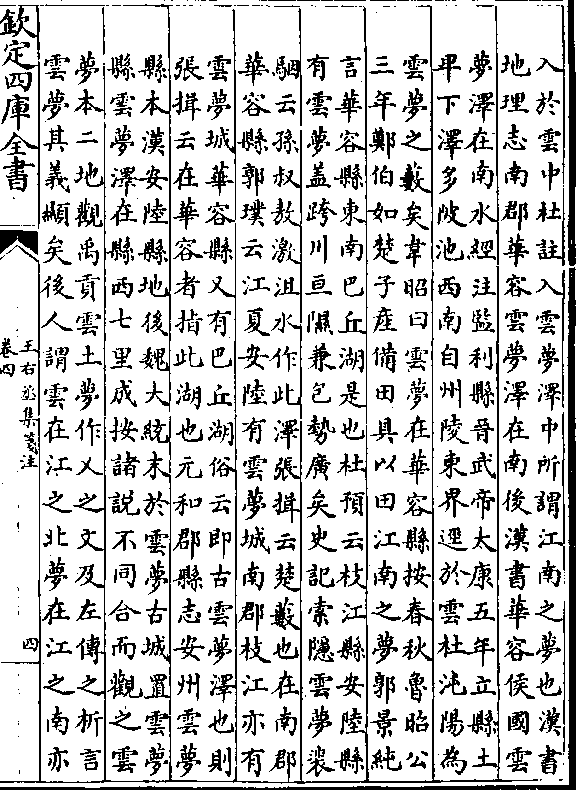 入於雲中杜註入雲夢澤中所謂江南之夢也漢書
地理志南郡華容雲夢澤在南後漢書華容侯國雲
夢澤在南水經注監利縣晉武帝太康五年立縣土
卑下澤多陂池西南自州陵東界逕於雲杜沌陽為
雲夢之藪矣韋昭曰雲夢在華容縣按春秋魯昭公
三年鄭伯如楚子產備田具以田江南之夢郭景純
言華容縣東南巴丘湖是也杜預云枝江縣安陸縣
有雲夢蓋跨川亘隰兼包勢廣矣史記索隱雲夢裴
駰云孫叔敖激沮水作此澤張揖云楚藪也在南郡
華容縣郭璞云江夏安陸有雲夢城南郡枝江亦有
雲夢城華容縣又有巴丘湖俗云即古雲夢澤也則
張揖云在華容者指此湖也元和郡縣志安州雲夢
縣本漢安陸縣地後魏大統末於雲夢古城置雲夢
縣雲夢澤在縣西七里成按諸說不同合而觀之雲
夢本二地觀禹貢雲土夢作乂之文及左傳之析言
雲夢其義顯矣後人謂雲在江之北夢在江之南亦
欽定四庫全書
王右丞集箋注
卷四
四